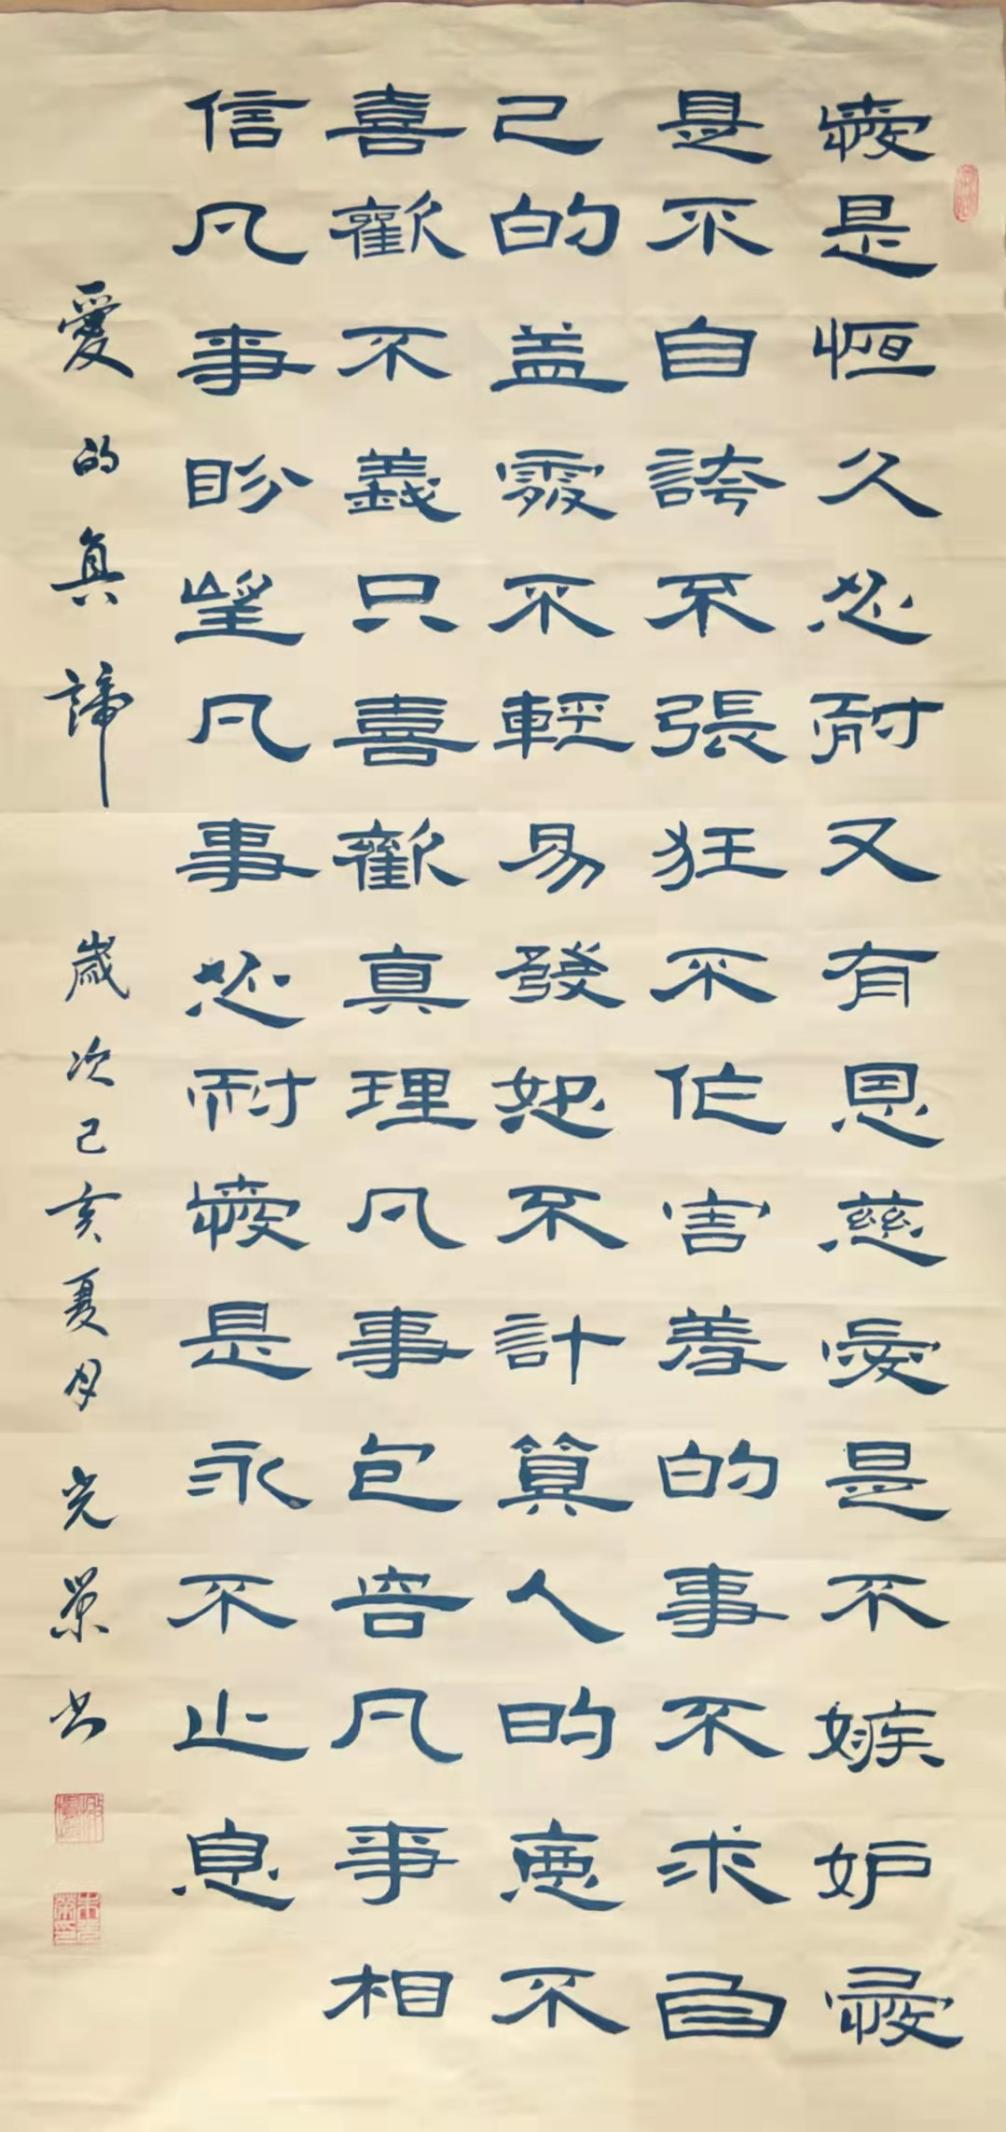 愛是恒久忍耐又有恩慈愛是不嫉妒愛
是不自誇不張狂不作害羞的事不求自
己的益處不輕易發怒不計算人的惡不
喜歡不義只喜歡真理凡事包容凡事相
信凡事盼望凡事忍耐愛是永不止息
愛的真諦 歲次己亥夏月光榮书